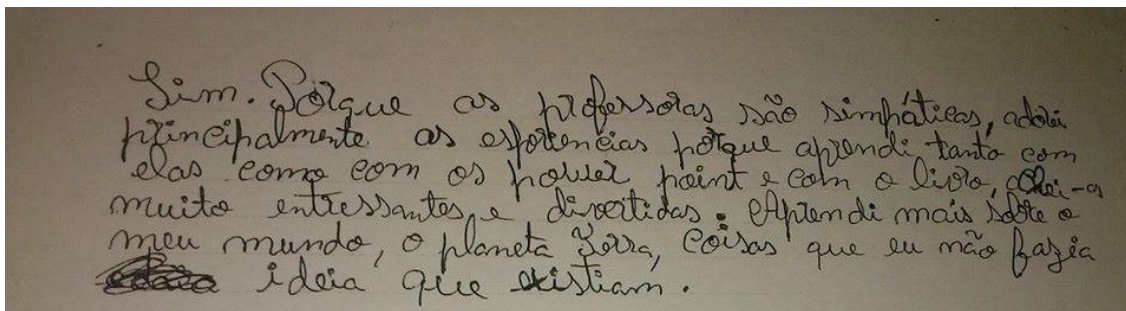 Sim. Porque as professoras são simpáticas, adorei
principalmente as esperiencias porque aprendi, tanto com
elas como com os power point e com o livro, achei-as
muito entressantes, e divertidas. Aprendi mais sobre o
meu mundo, o planeta Terra, coisas que eu não fazia
ideia que existiam.